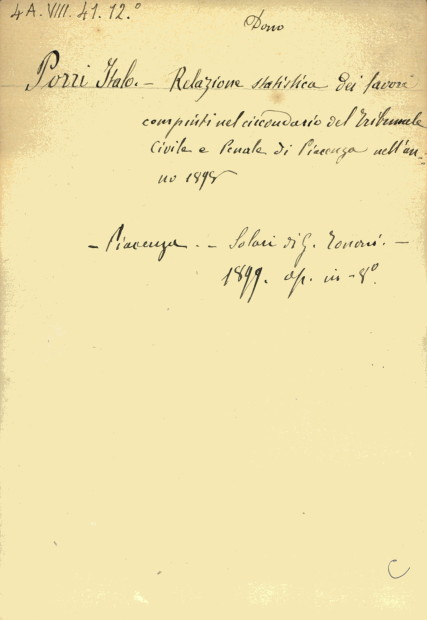 4A. VIII. 41. 12.°
Dono
Porri Italo. - Relazione statistica dei lavori
compiuti nel circondario del Tribunale
Civile e Penale di Piacenza nell'an-
no 1898
- Piacenza. - Solari di G. Tononi. -
1899. op. in-8°.
C